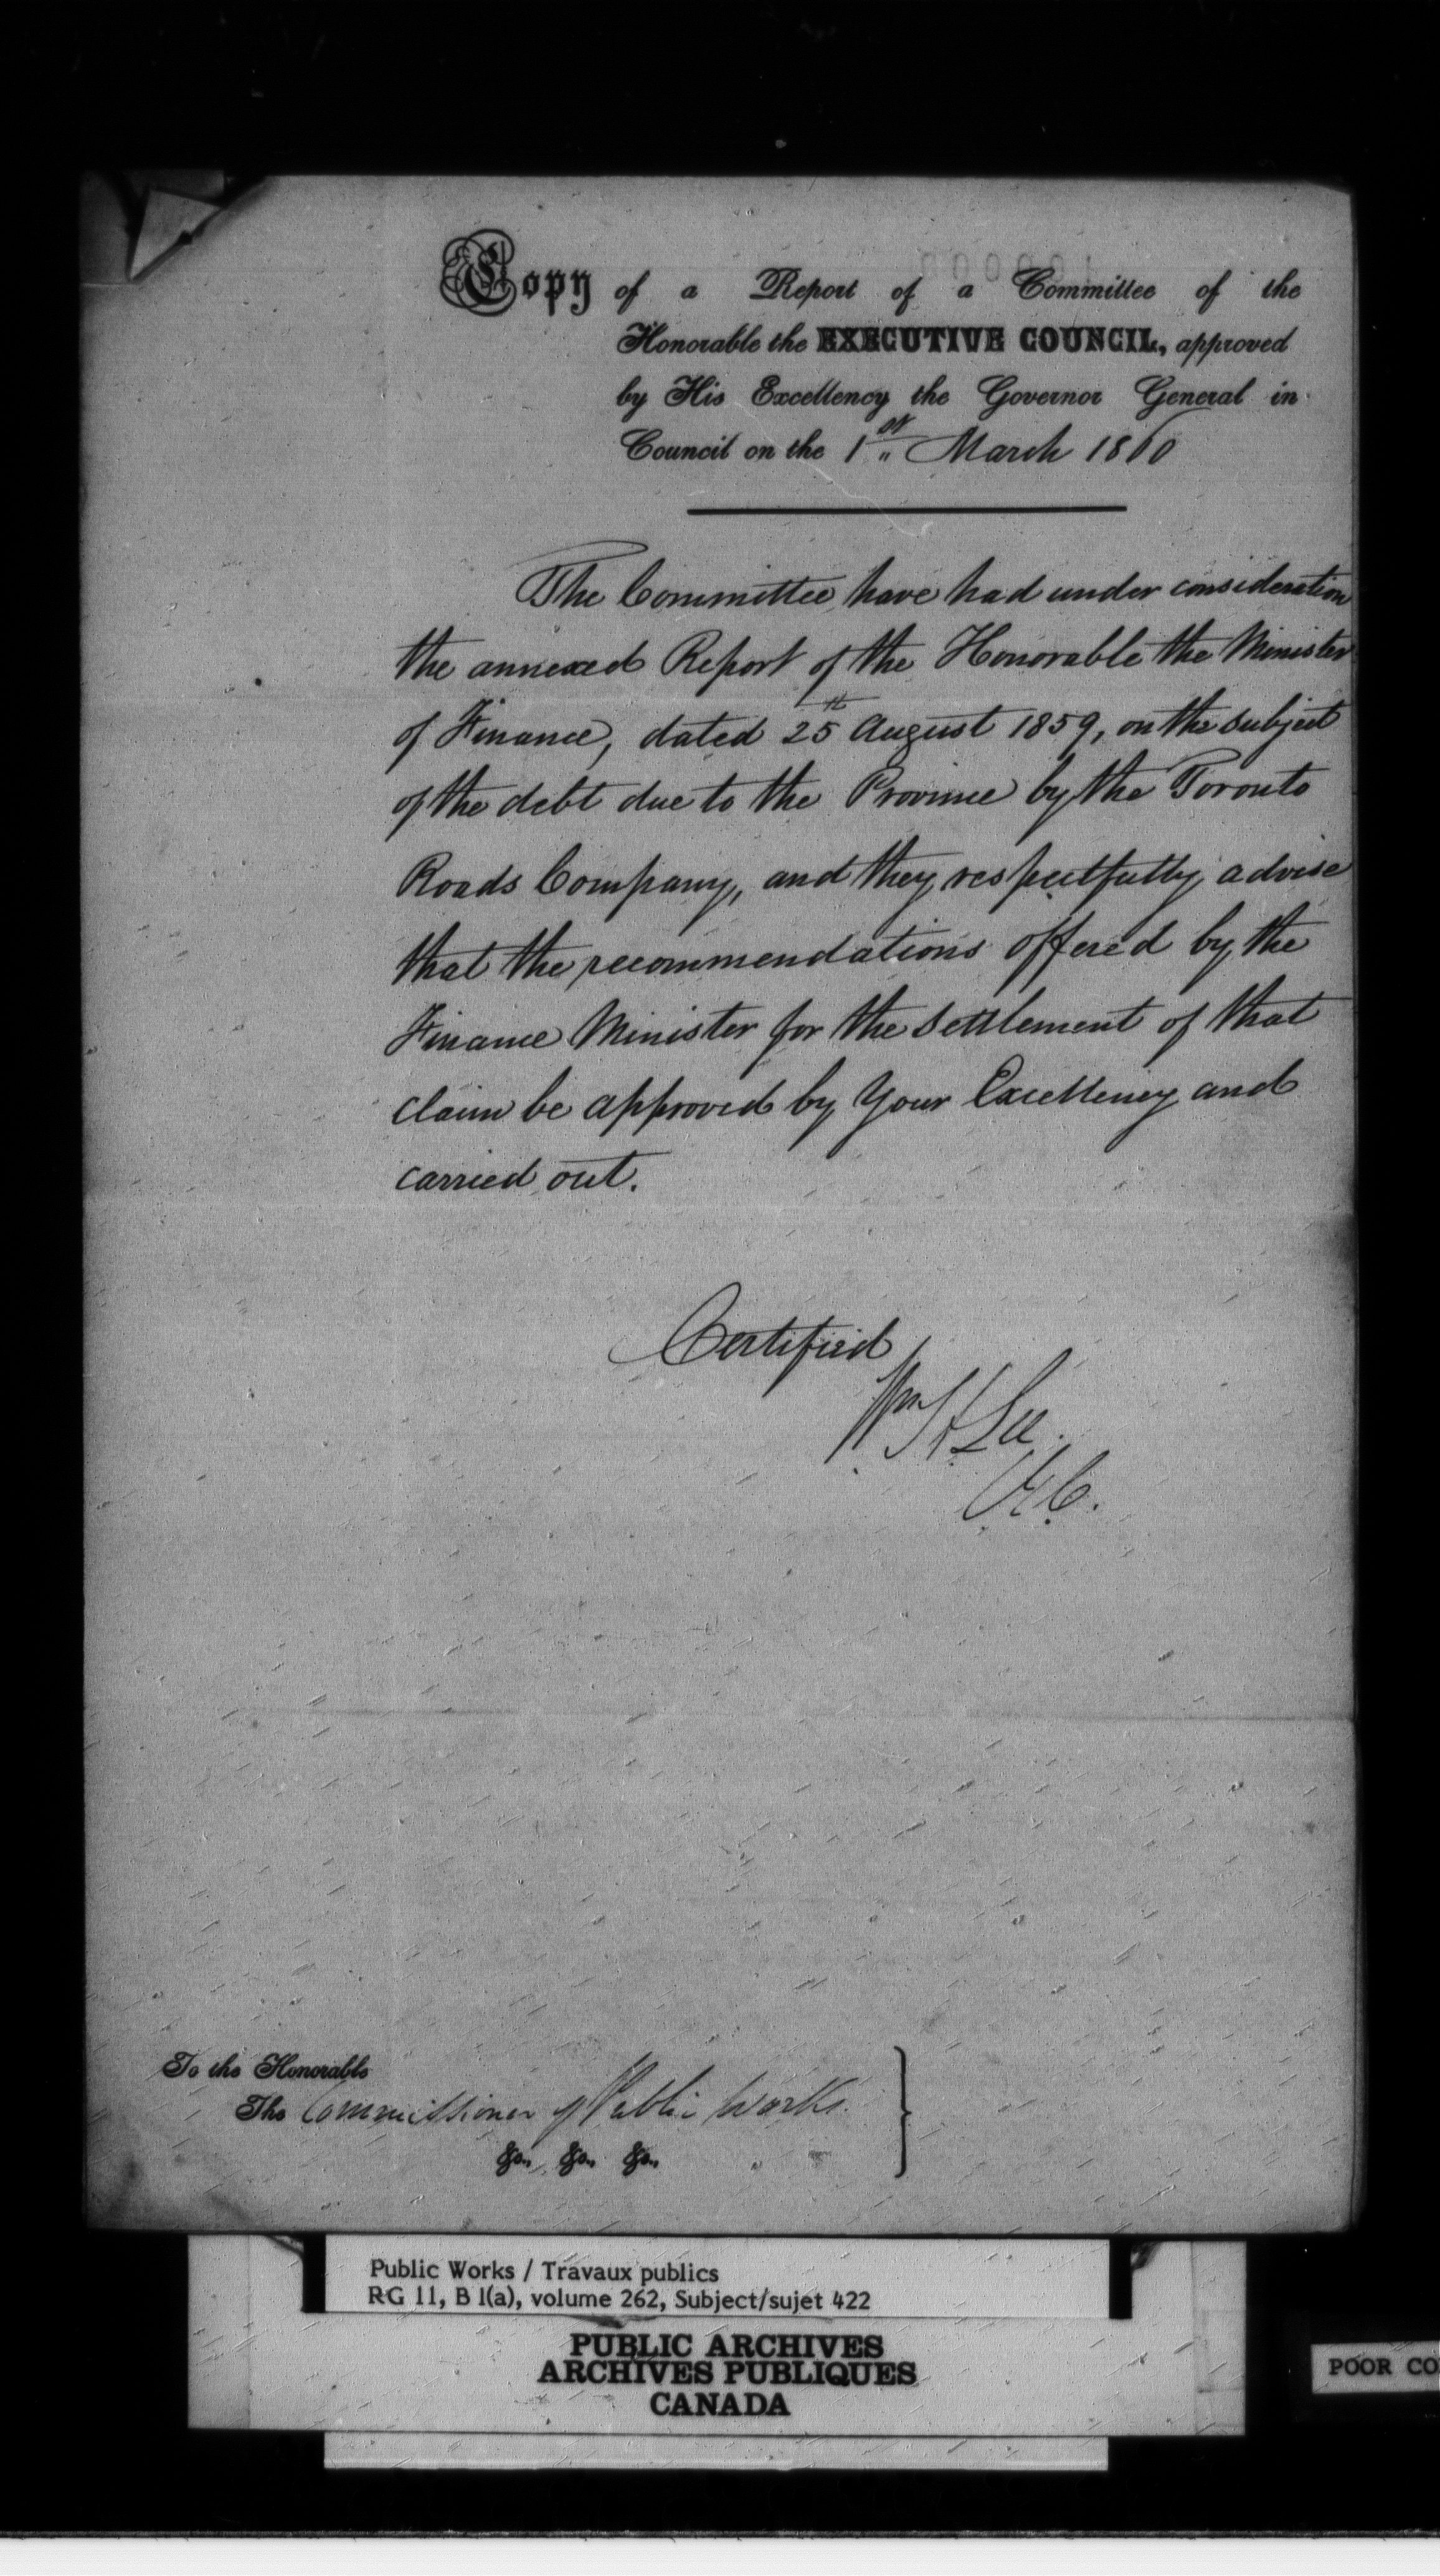 Copy of a Report of a Committee of the
Honorable the EXECUTIVE COUNCIL, approved
by His Excellency the Governor General in
Council on the 1st March 1860
The Committee have had under consideration
the annexed Report of the Honorable the Minister
of Finance, dated 25th August 1859, on the subject
of the debt due to the Province by the Toronto
Roads Company, and they respectfully advise
that the recommendations offered by the
Finance Minister for the settlement of that
claim be approved by Your Excellency and
carried out.
Certified
Wm H Lee
To the Honorable
The Commissioner of Public Works.
&c., &c., &c.,
Public Works / Travaux publics
RG 11, B 1(a), volume 262, Subject/sujet 422
PUBLIC ARCHIVES
ARCHIVES PUBLIQUES
CANADA
POOR CO